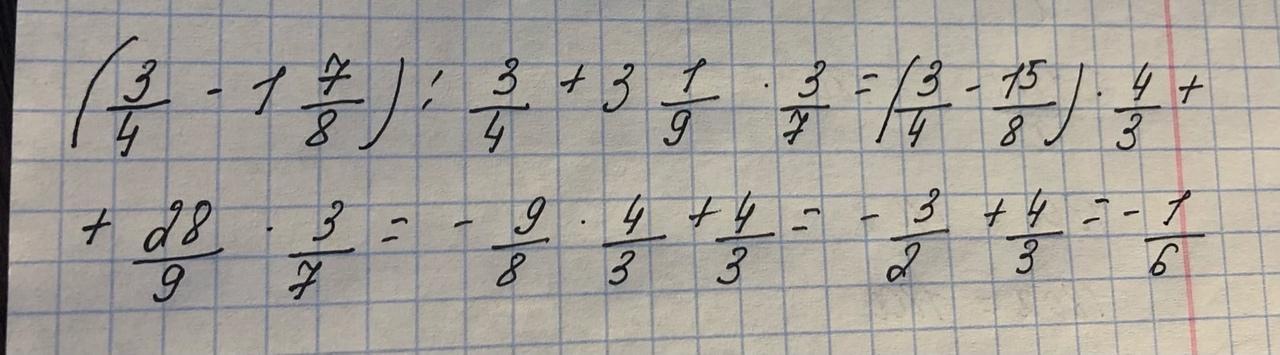 (3/4 - 1 7/8) : 3/4 + 3 1/9 · 3/7 = (3/4 - 15/8) · 4/3 +
+ 28/9 · 3/7 = - 9/8 · 4/3 + 4/3 = - 3/2 + 4/3 = - 1/6